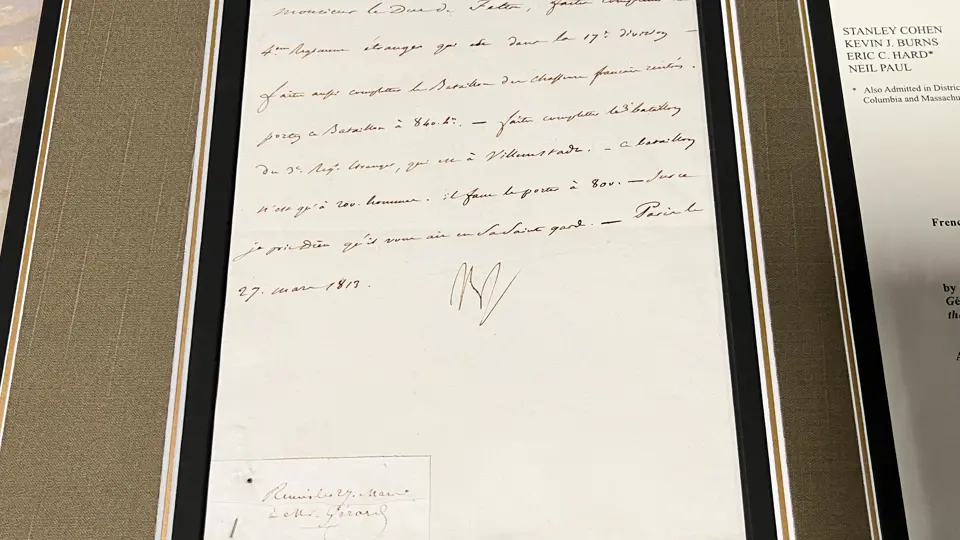 monsieur le Duc de Feltre, faites compléter le
4me Régiment étranger qui est dans la 17e division —
faites aussi compléter le Bataillon du chasseurs français rentrés.
portez ce Bataillon à 840. h. — faites compléter le 3e bataillon
du 3e Regt étranger, qui est à Villemstadt. — ce bataillon
n'est qu'à 200. hommes. il faut le porter à 800. — Sur ce
je prie Dieu qu'il vous ait en Sa Sainte garde. — Paris le
27. mars 1813.
Remis le 27. Mars
à Mr. Gérard
STANLEY COHEN
KEVIN J. BURNS
ERIC C. HARD*
NEIL PAUL
* Also Admitted in Distric
Columbia and Massachu
Frenc
by
Gé
the
A